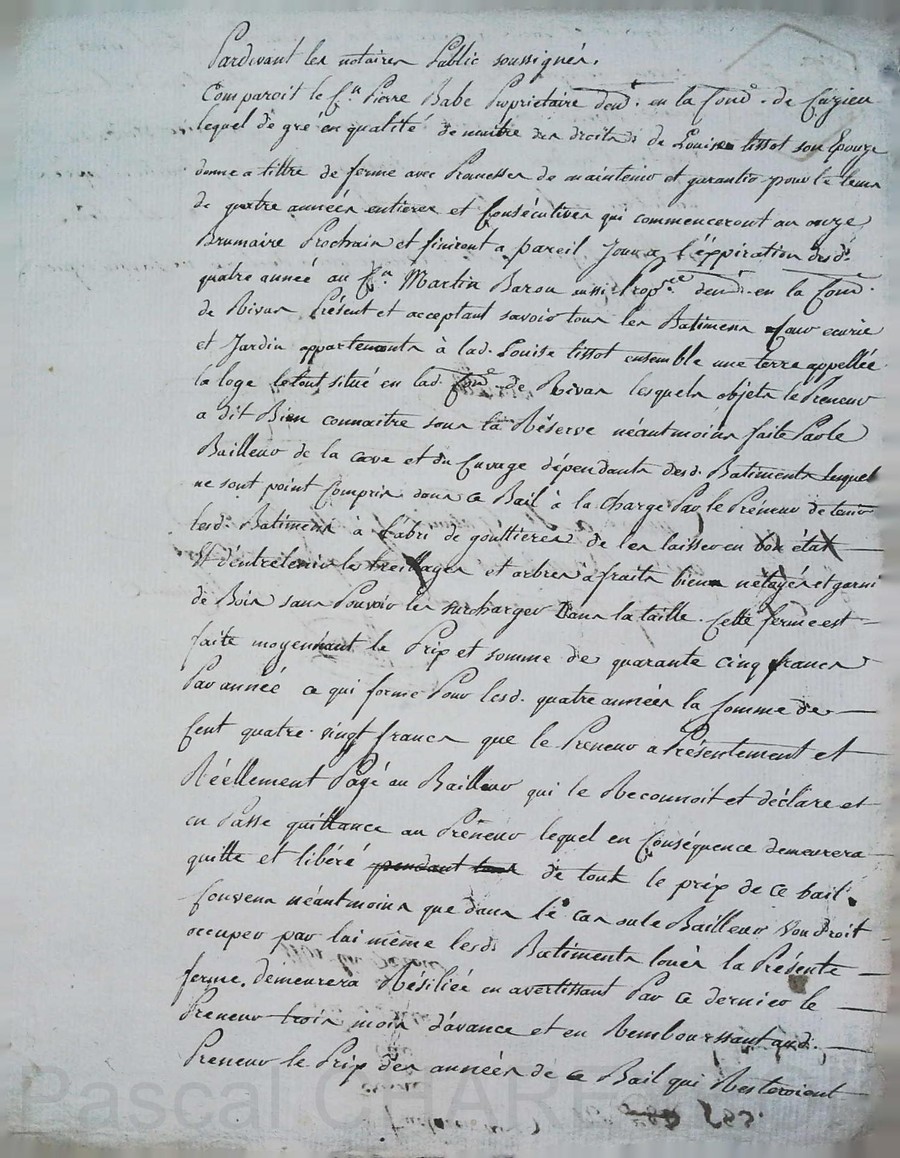 Pardevant les notaires Public soussignés.
Comparoit le C.n Pierre Babe Propriétaire dem.t en la Com.e de Cuzieu
lequel de gré en qualité de maitre des droits de Louise tissot son Epouze
donne a tittre de ferme avec Promesses de maintenir et garantir pour le tems
de quatre années entieres et Consécutives qui commenceront au onze
Brumaire Prochain et finiront a pareil Jour a l'éxpiration desd.
quatre anneé au C.n Martin Barou aussi Prop.re dem.t en la Com.
de Rivas Présent et acceptant savoir tous les Batimens Cour ecurie
et Jardin appartenants à lad. Louise tissot ensemble une terre appelleé
la loge le tout situé en lad. Com.e de Rivas lesquels objets le Preneur
a dit Bien connaitre sous la Réserve néantmoins faite Par le
Bailleur de la cave et du Cuvage dépendants desd. Batiments lesquels
ne sont point Compris dans ce Bail à la charge Par le Preneur de tenir
lesd. Batimens à l'abri de gouttieres de les laisser en bon état
Et d'entretenir les treillages et arbres a fruits biens netoyés et garni
de Bois sans Pouvoir les surcharger Dans la taille. Cette ferme est
faite moyennant le Prix et somme de quarante cinq francs
Par anneé ce qui forme Pour lesd. quatre années la Somme de
Cent quatre-vingt francs que le Preneur a Présentement et
Réellement Payé au Bailleur qui le Reconnoit et déclare et
en Passe quittance au Préneur lequel en Conséquence demeurera
quitte et libéré pendant tout de tout le prix de ce bail.
Convenu néantmoins que dans le cas ou le Bailleur Voudroit
occuper par lui même lesd. Batiments loués la Présente
ferme. demeurera Résiliée en avertissant Par ce dernier le
Preneur trois mois d'avance et en Remboursant aud.
Preneur le Prix des années de ce Bail qui Resteroient
Pascal CHAR